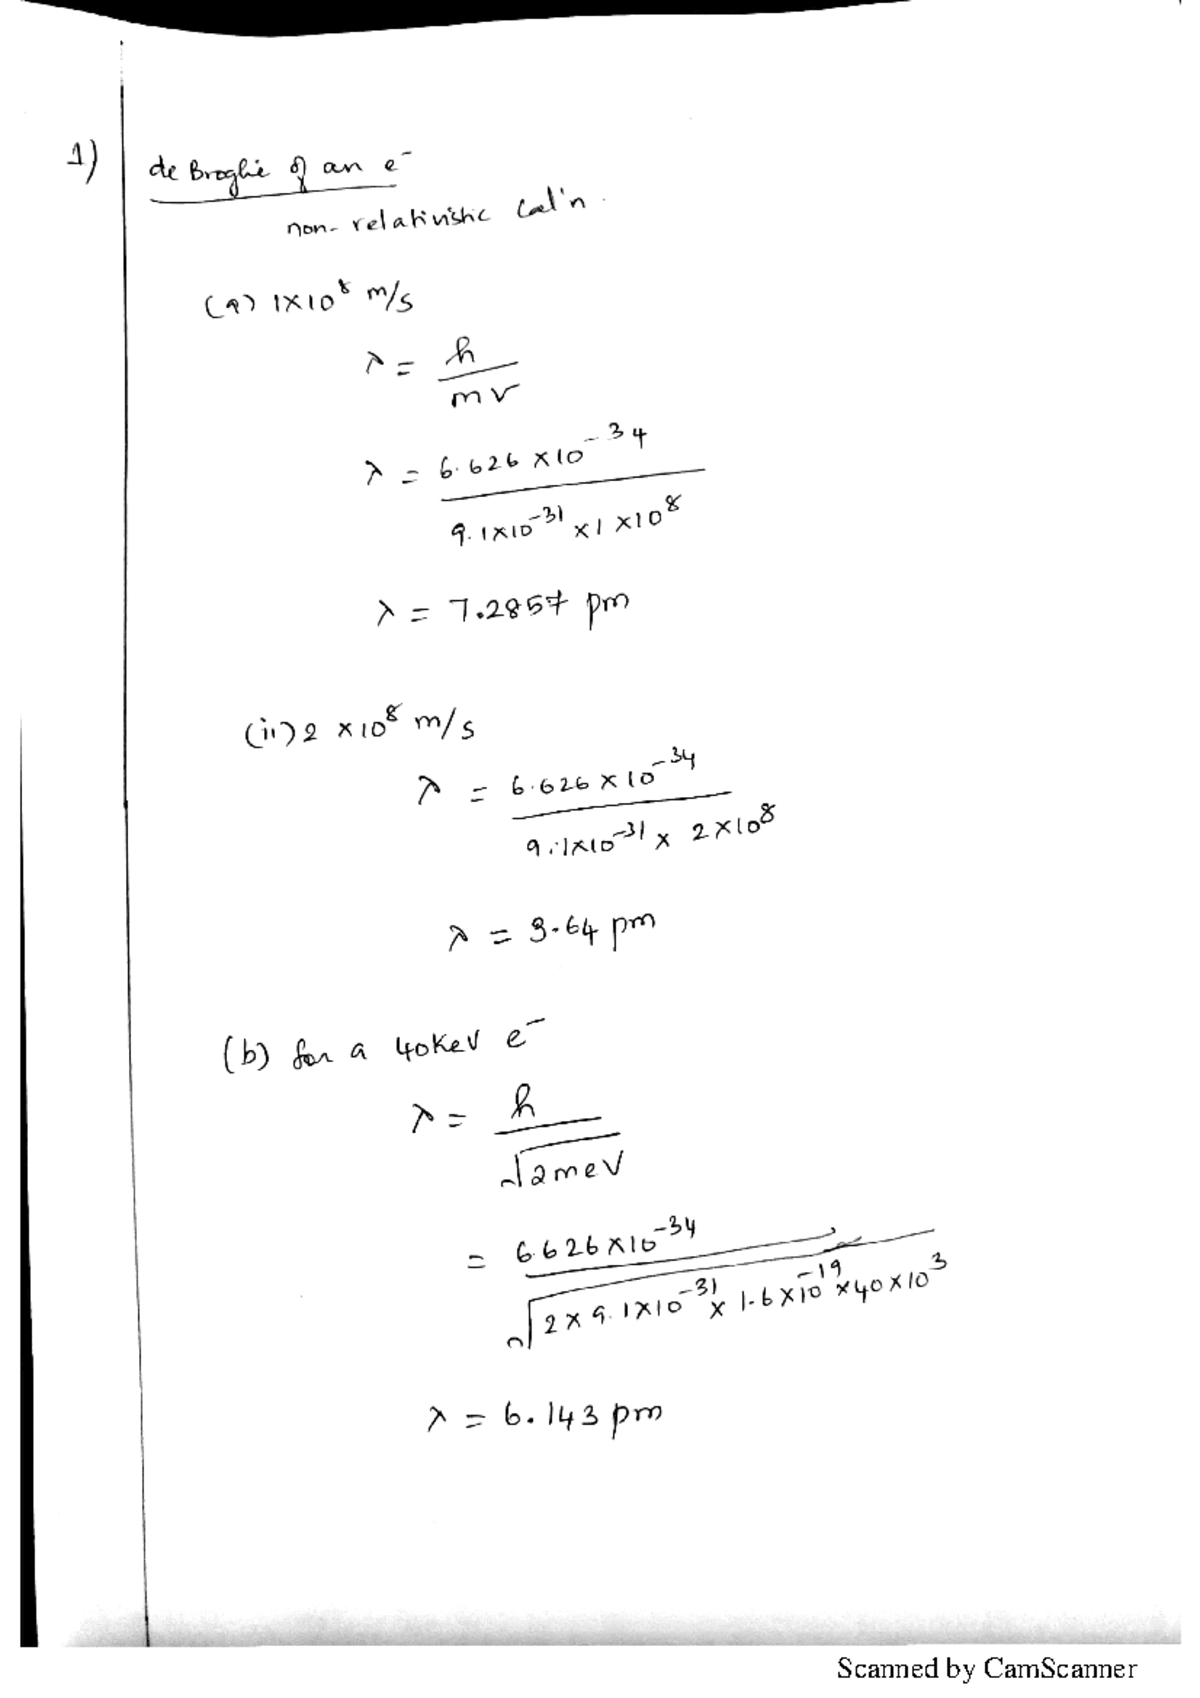 1)
de Broglie of an e⁻
non-relativistic Cal'n.
(a) 1×10⁸ m/s
λ = h
mv
λ = 6.626 ×10⁻³⁴
9.1×10⁻³¹ ×1 ×10⁸
λ = 7.2857 pm
(ii) 2 ×10⁸ m/s
λ = 6.626 ×10⁻³⁴
9.1×10⁻³¹ × 2×10⁸
λ = 3.64 pm
(b) for a 40KeV e⁻
λ = h
√2meV
= 6.626×10⁻³⁴
√2×9.1×10⁻³¹ × 1.6×10⁻¹⁹ ×40×10³
λ = 6.143 pm
Scanned by CamScanner